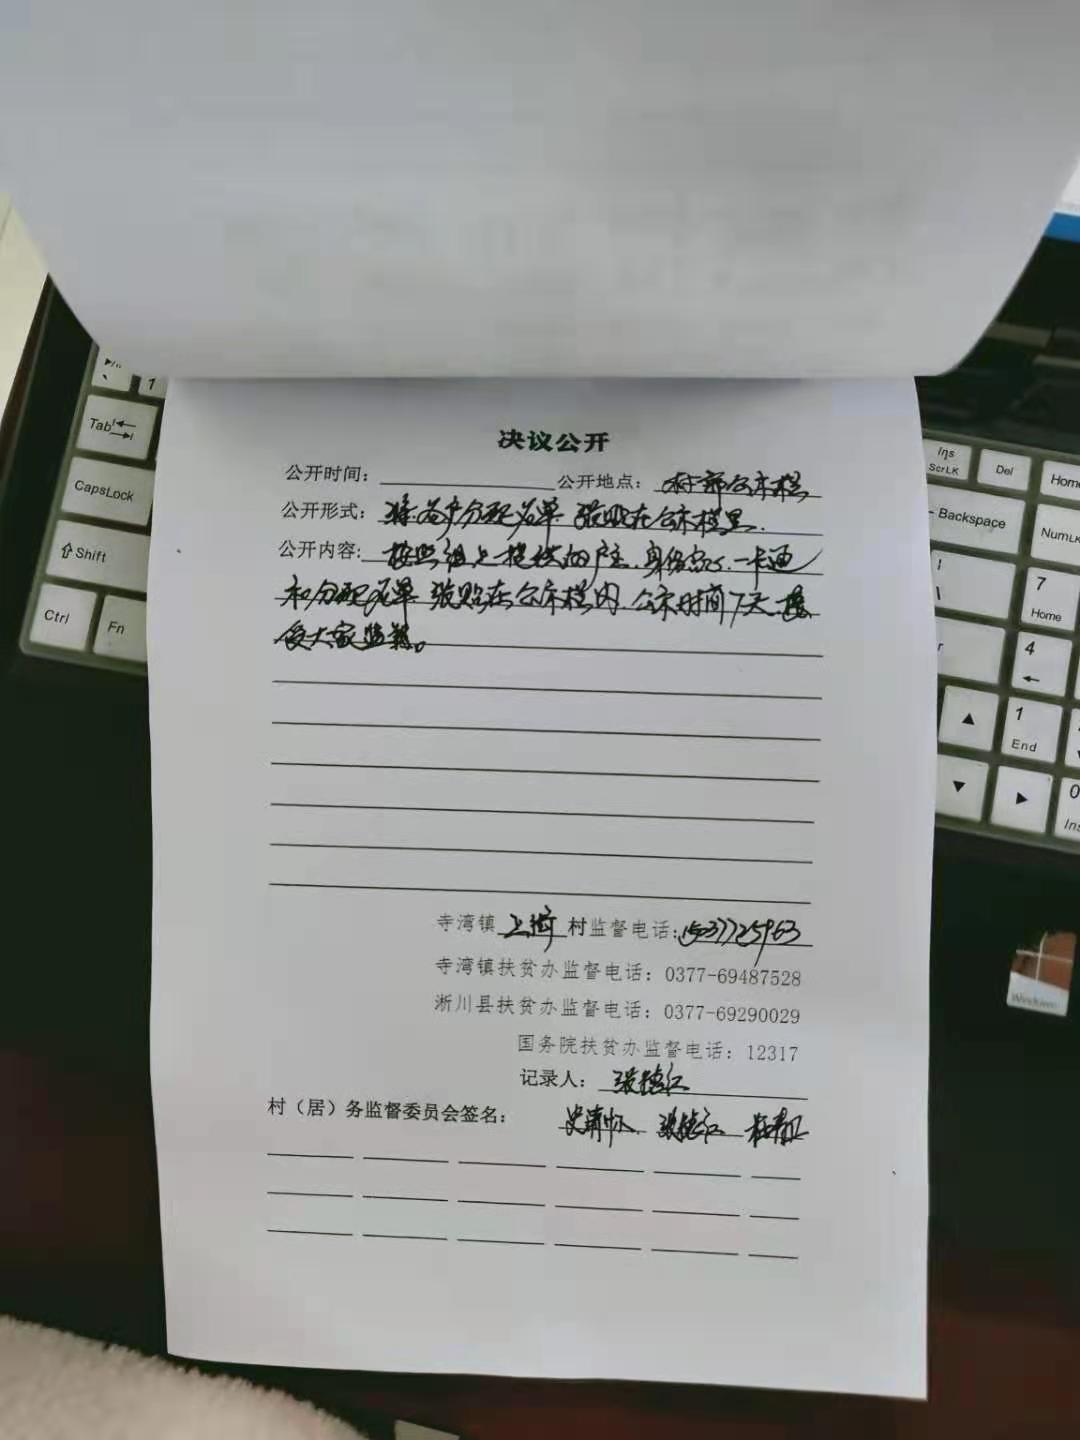 Tab
CapsLock
Shift
Ctrl
Fn
1
ScrLK
Del
Home
Backspace
NumLK
7
Home
4
1
End
0
Ins
Windows
决议公开
公开时间： 公开地点：村部公示栏
公开形式：将各户分配名单 张贴在公示栏里.
公开内容：按照组上提供的户主.身份证、一卡通
和分配名单 张贴在公示栏内.公示时间7天.接
受大家监督。
寺湾镇上街村监督电话：15037725963
寺湾镇扶贫办监督电话：0377-69487528
淅川县扶贫办监督电话：0377-69290029
国务院扶贫办监督电话：12317
记录人：张德江
村（居）务监督委员会签名： 张德江